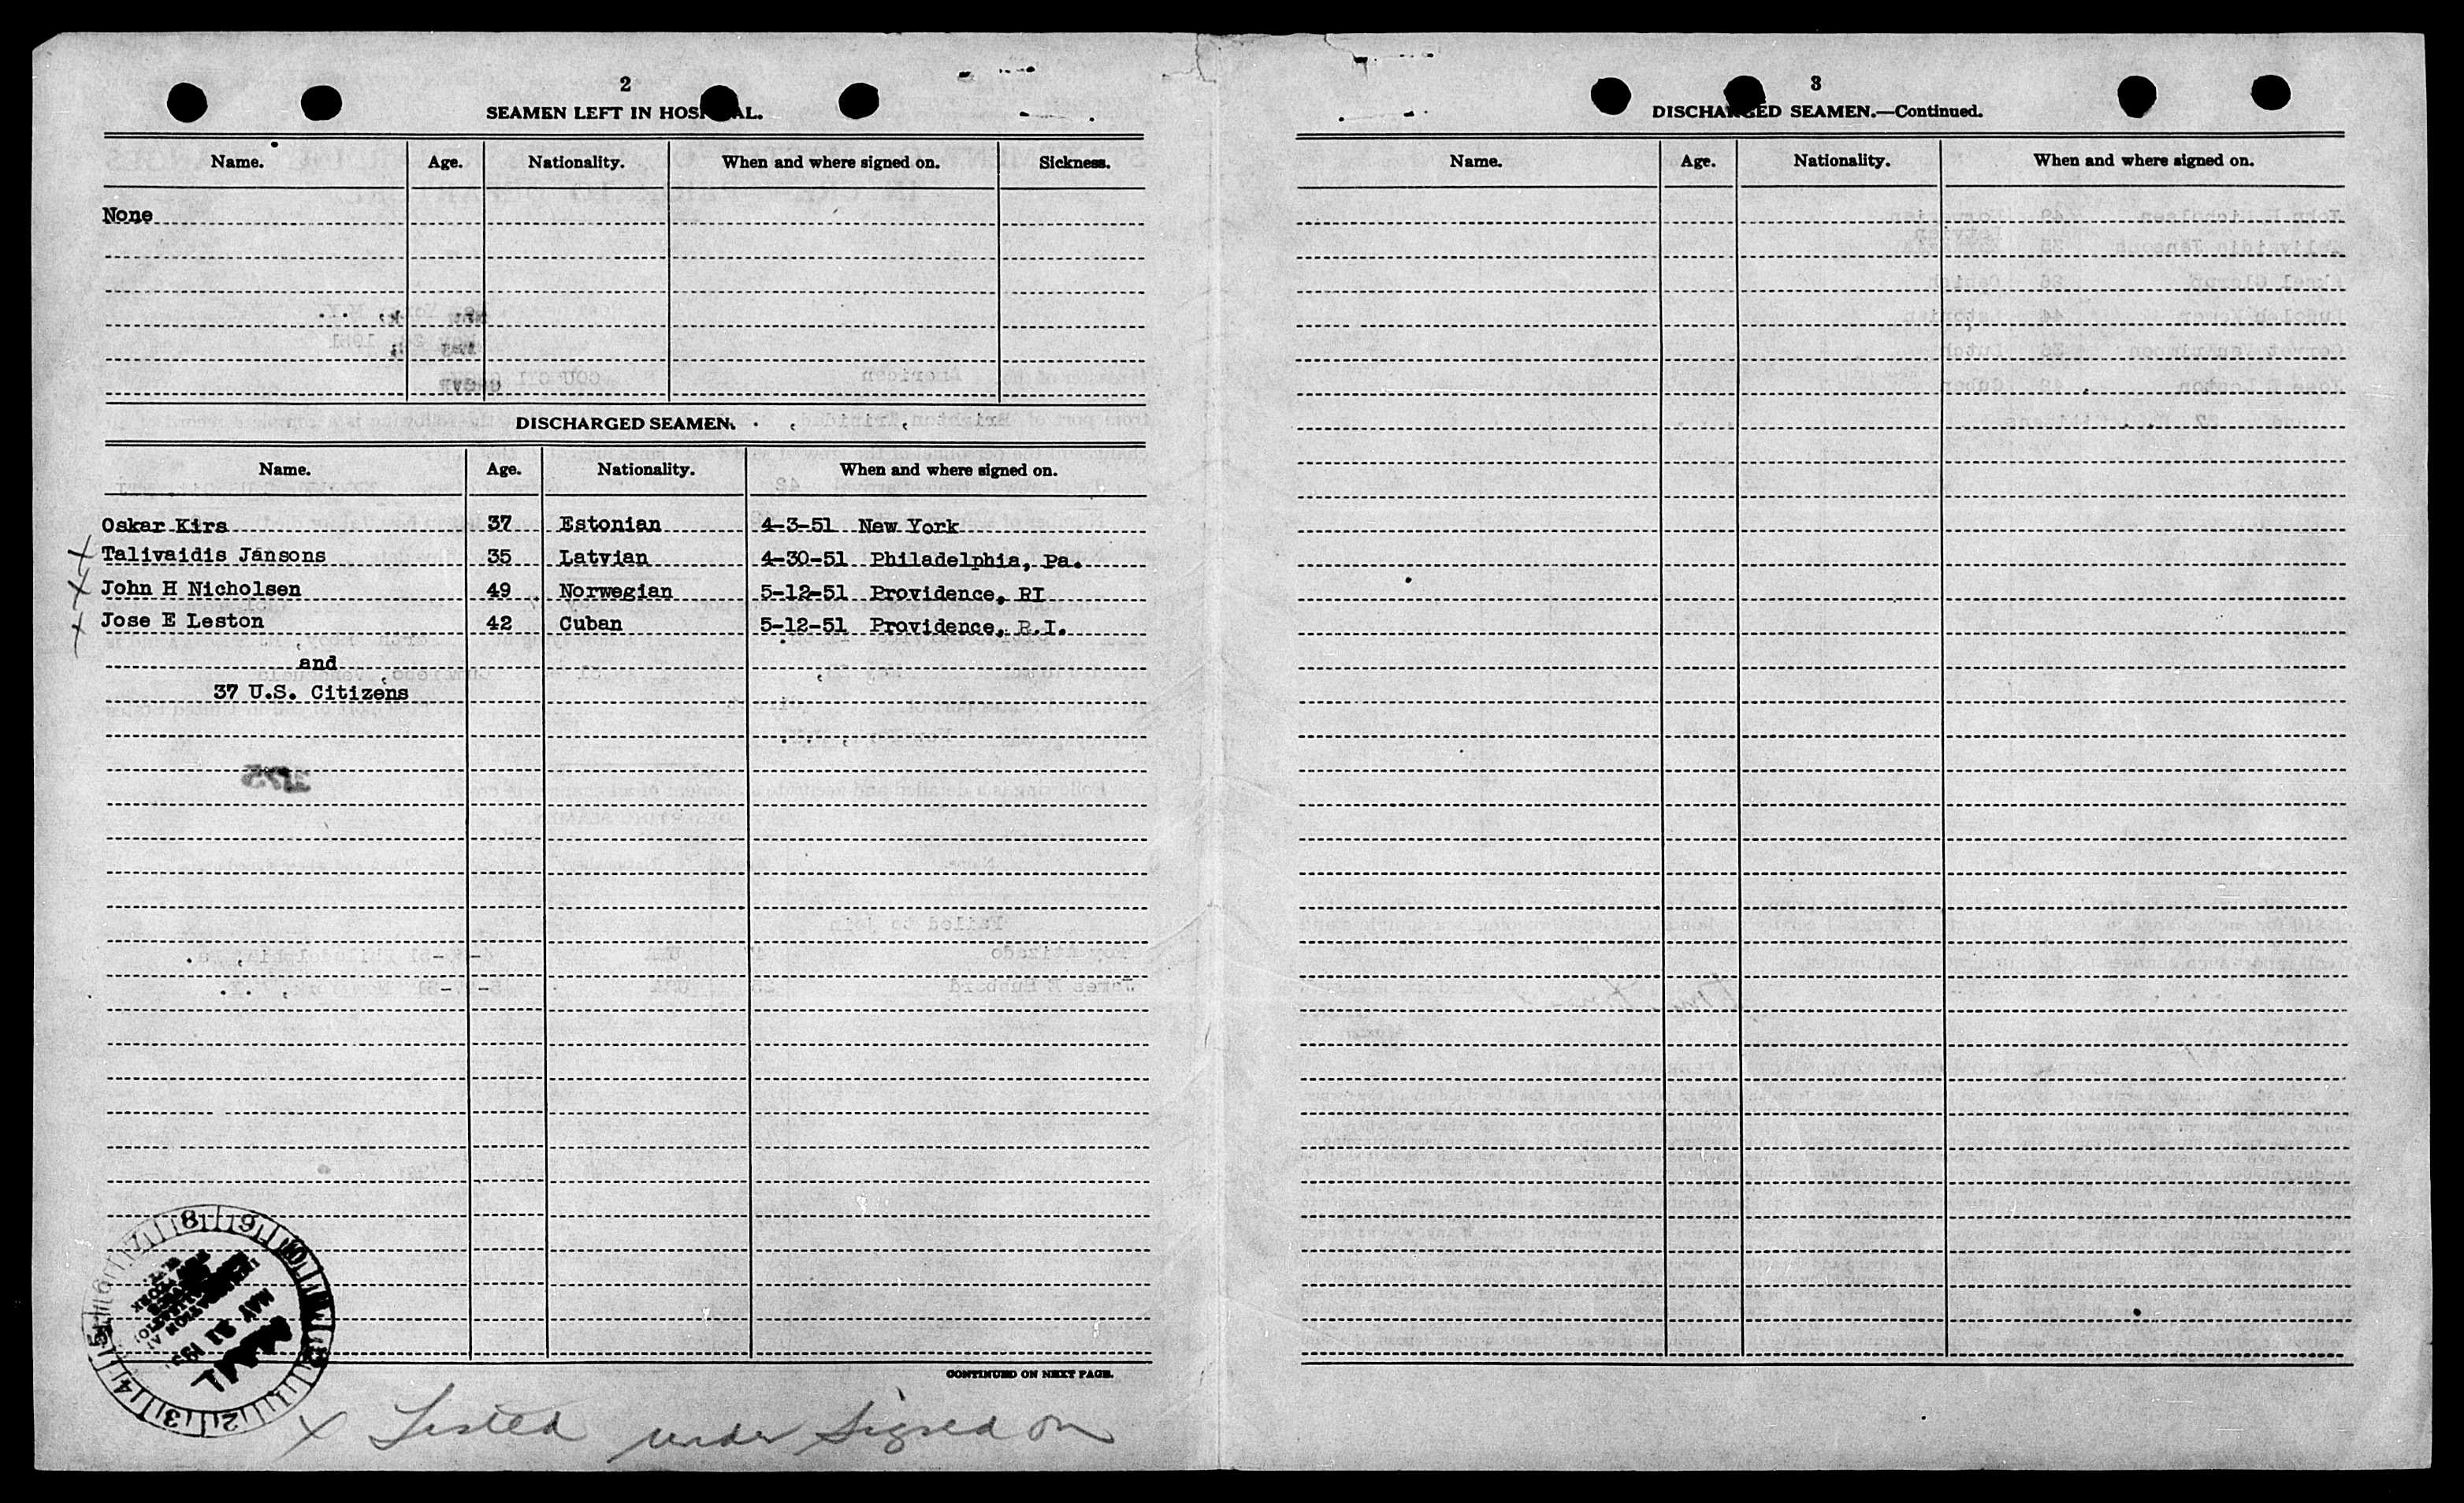 2
SEAMEN LEFT IN HOSPITAL.
Name. Age. Nationality. When and where signed on. Sickness.
None
DISCHARGED SEAMEN.
Name. Age. Nationality. When and where signed on.
Oskar Kirs 37 Estonian 4-3-51 New York
X Talivaidis Jansons 35 Latvian 4-30-51 Philadelphia, Pa.
X John H Nicholsen 49 Norwegian 5-12-51 Providence, RI
X Jose E Leston 42 Cuban 5-12-51 Providence, R.I.
and
37 U.S. Citizens
CONTINUED ON NEXT PAGE.
X Listed under Signed on
3
DISCHARGED SEAMEN.—Continued.
Name. Age. Nationality. When and where signed on.